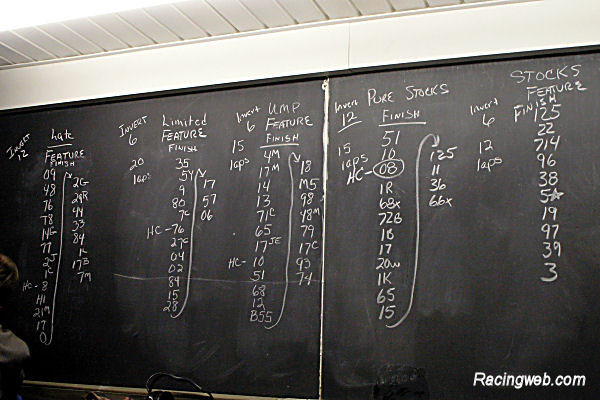 INVERT
12
Late
FEATURE
FINISH
09
48
76
78
14G
77
2J
1C
HC - 8
H1
21M
17
0
2G
28R
44
33
84
1K
17B
7M
INVERT
6
20
laps
Limited
FEATURE
FINISH
35
54
9
80
7C
HC - 76
27C
04
02
84
15
28
17
57
06
Invert
6
15
laps
UMP
FEATURE
FINISH
4M
17M
14
13
71C
65
17JE
HC - 10
51
68
12
B55
18
M5
98
48M
79
17C
93
74
Invert
12
15
laps
PURE STOCKS
FINISH
51
10
HC - 08
1R
68x
72B
1B
17
20W
1K
65
15
125
11
36
66x
Invert
6
12
laps
STOCKS
FEATURE
FINISH
125
22
714
96
38
5☆
19
97
39
3
Racingweb.com